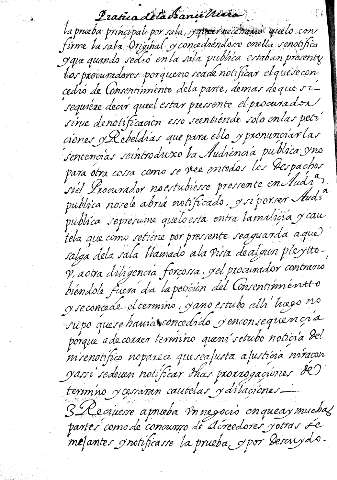 Pratica de la Chancilleria
la prueba principal por sala, y quelo con
firme la sala Original, y concediendose en ella se notifica
y que quando se dio en la sala publica estaban presentes
los procuradores porque no se ade notificar el que se con
cedió de Consentimiento dela parte, demas de que si
se quiere decir que el estar pressente el procurador
sirve de notificacion esso se entiende solo en las peti
ciones, y Rebeldias que para ello y pronunciar las
sentencias se introduxo la Audiencia publica, y no
para otra cosa como se vee en todos los despachos
si el Procurador no estubiesse pressente en Audiª
publica no se le abria notificado, y si por ser Audª
publica se presume que lo está entra la malicia y cau
tela que como se tiene por presente se aguarda a que
salga dela sala llamado a la vista de algun pleytto
v, a otra diligencia forçossa, y el procurador contrario
biendole fuera da la peticion del Consentimientto
y se concede el termino, y a no estubo alli luego no
supo que se havia concedido, y en consequencia
porque a de correr termino que ni se tubo noticia del
ni se notifico no parece que se ajusta a justicia ni raçon
y assi se deven notificar dhas prorrogaciones de
termino y cesaren cautelas y dilaciones
3. Recivesse a prueba Vn negocio en que ay muchas
partes como de concurso de Acreedores y otras se
mejantes y notificasse la prueba, y por descuydo